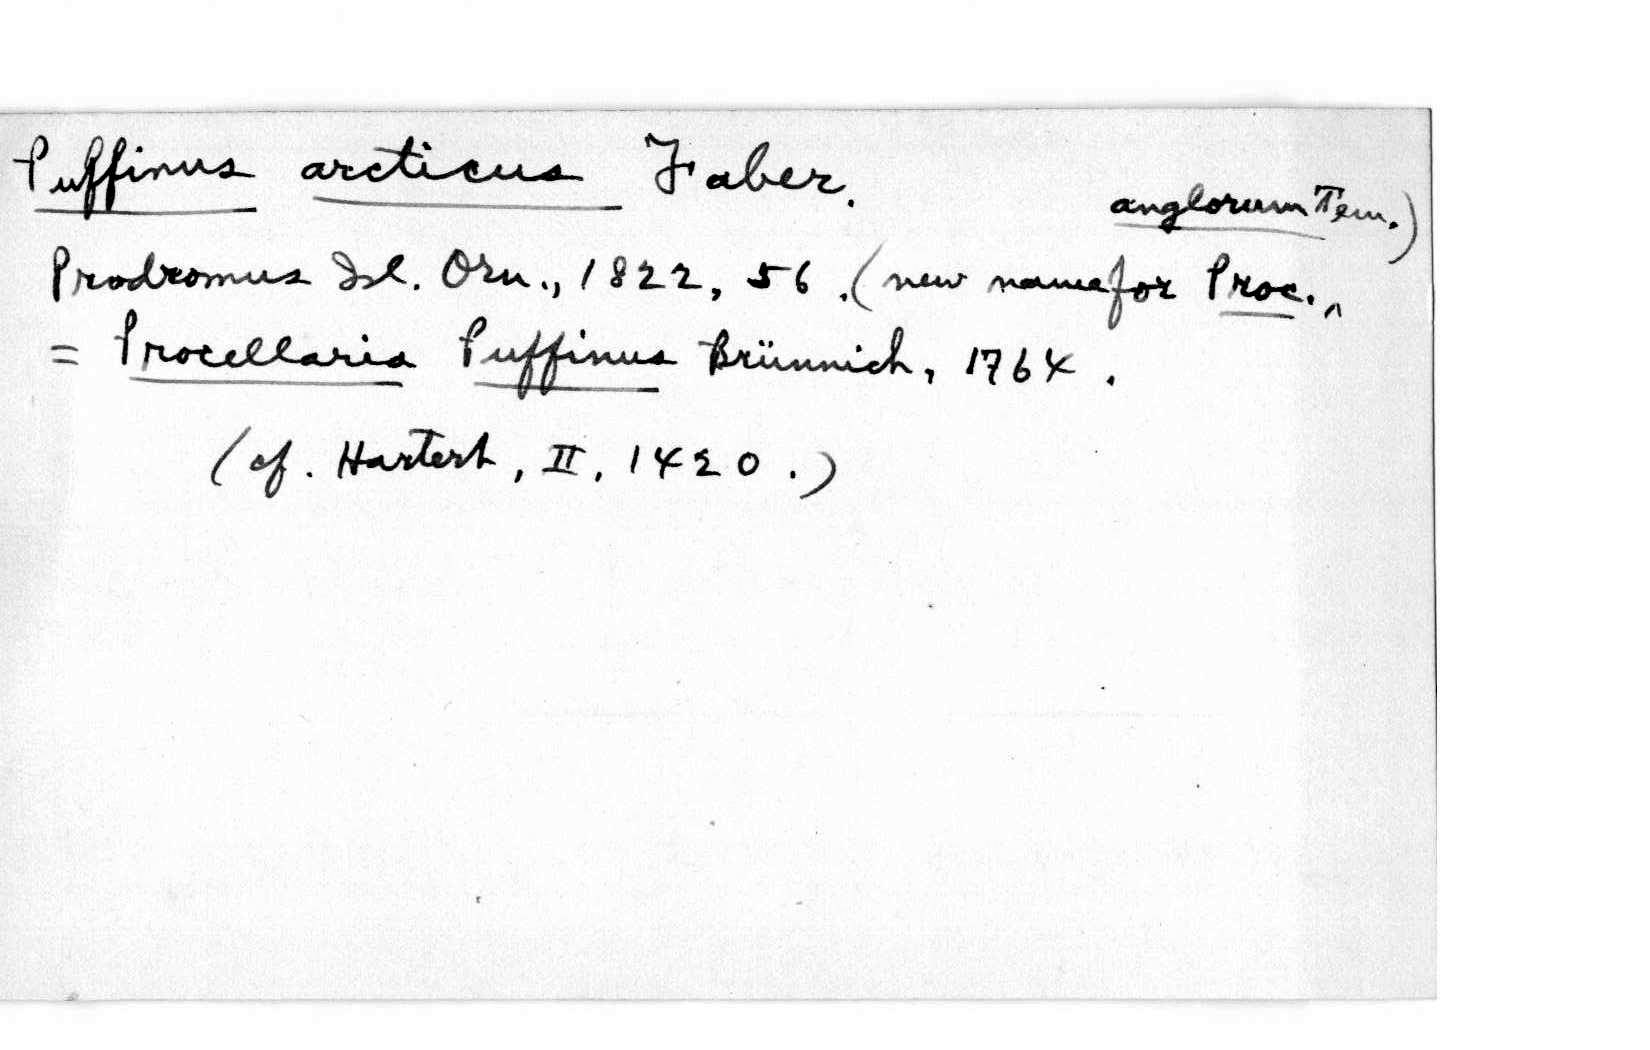 Puffinus arcticus Faber.
Prodromus Isl. Orn., 1822, 56. (new name for Proc. anglorum Tem.)
= Procellaria Puffinus Brünnich, 1764.
(cf. Hartert, II, 1420.)